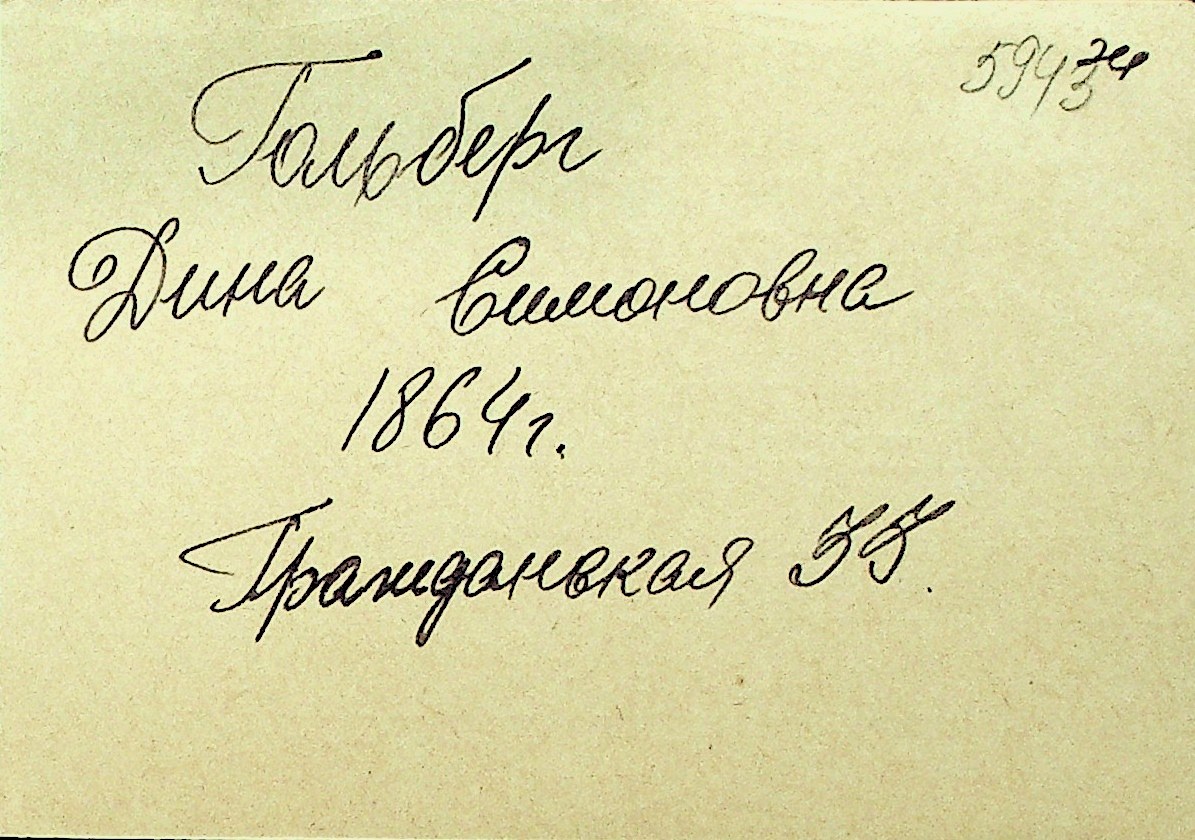 Гольберг
Дина Симоновна
1864г.
Гражданская 55.